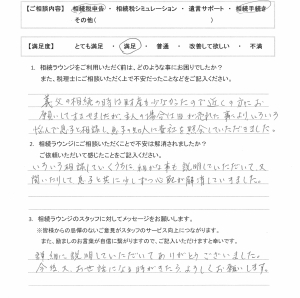 【ご相談内容】 相続税申告 ・ 相続税シミュレーション ・ 遺言サポート ・ 相続手続き
その他( )
【満足度】 とても満足 ・ 満足 ・ 普通 ・ 改善して欲しい ・ 不満
1. 相続ラウンジをご利用いただく前は、どのような事にお困りでしたか?
また、税理士にご相談いただく上で不安だったことなどをご記入ください。
義父の相続の時は財産が少なかったので近くの方にお
願いして済ませましたが、主人の場合は日が
悩んで息子と相談し息子の知人に貴社を紹介していただきました。
2. 相続ラウンジにご相談いただくことで不安は解消されましたか?
ご依頼いただいて感じたことをご記入ください。
いろいろ相談していくうちに細かな事も説明していただいて、又
聞いたりして息子と共に少しずつ心配が解消していきました。
3. 相続ラウンジのスタッフに対してメッセージをお願いします。
※皆様からの忌憚のないご意見がスタッフのサービス向上につながります。
また、励ましのお言葉が自信に繋がりますので、ご記入いただけますと幸いです。
詳細に説明していただいてありがとうございました。
今後又お世話になる時がきたらよろしくお願いします。